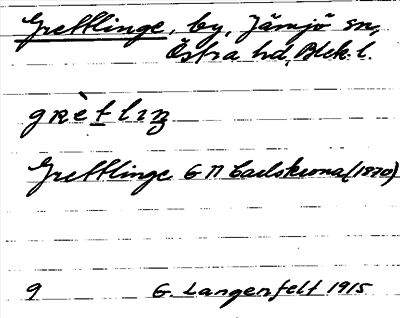 Grettlinge, by, Jämjö sn,
Östra hd, Blek. l.
grètlıŋ
Grettlinge G Π Carlskrona (1870)
9 G. Langenfelt 1915